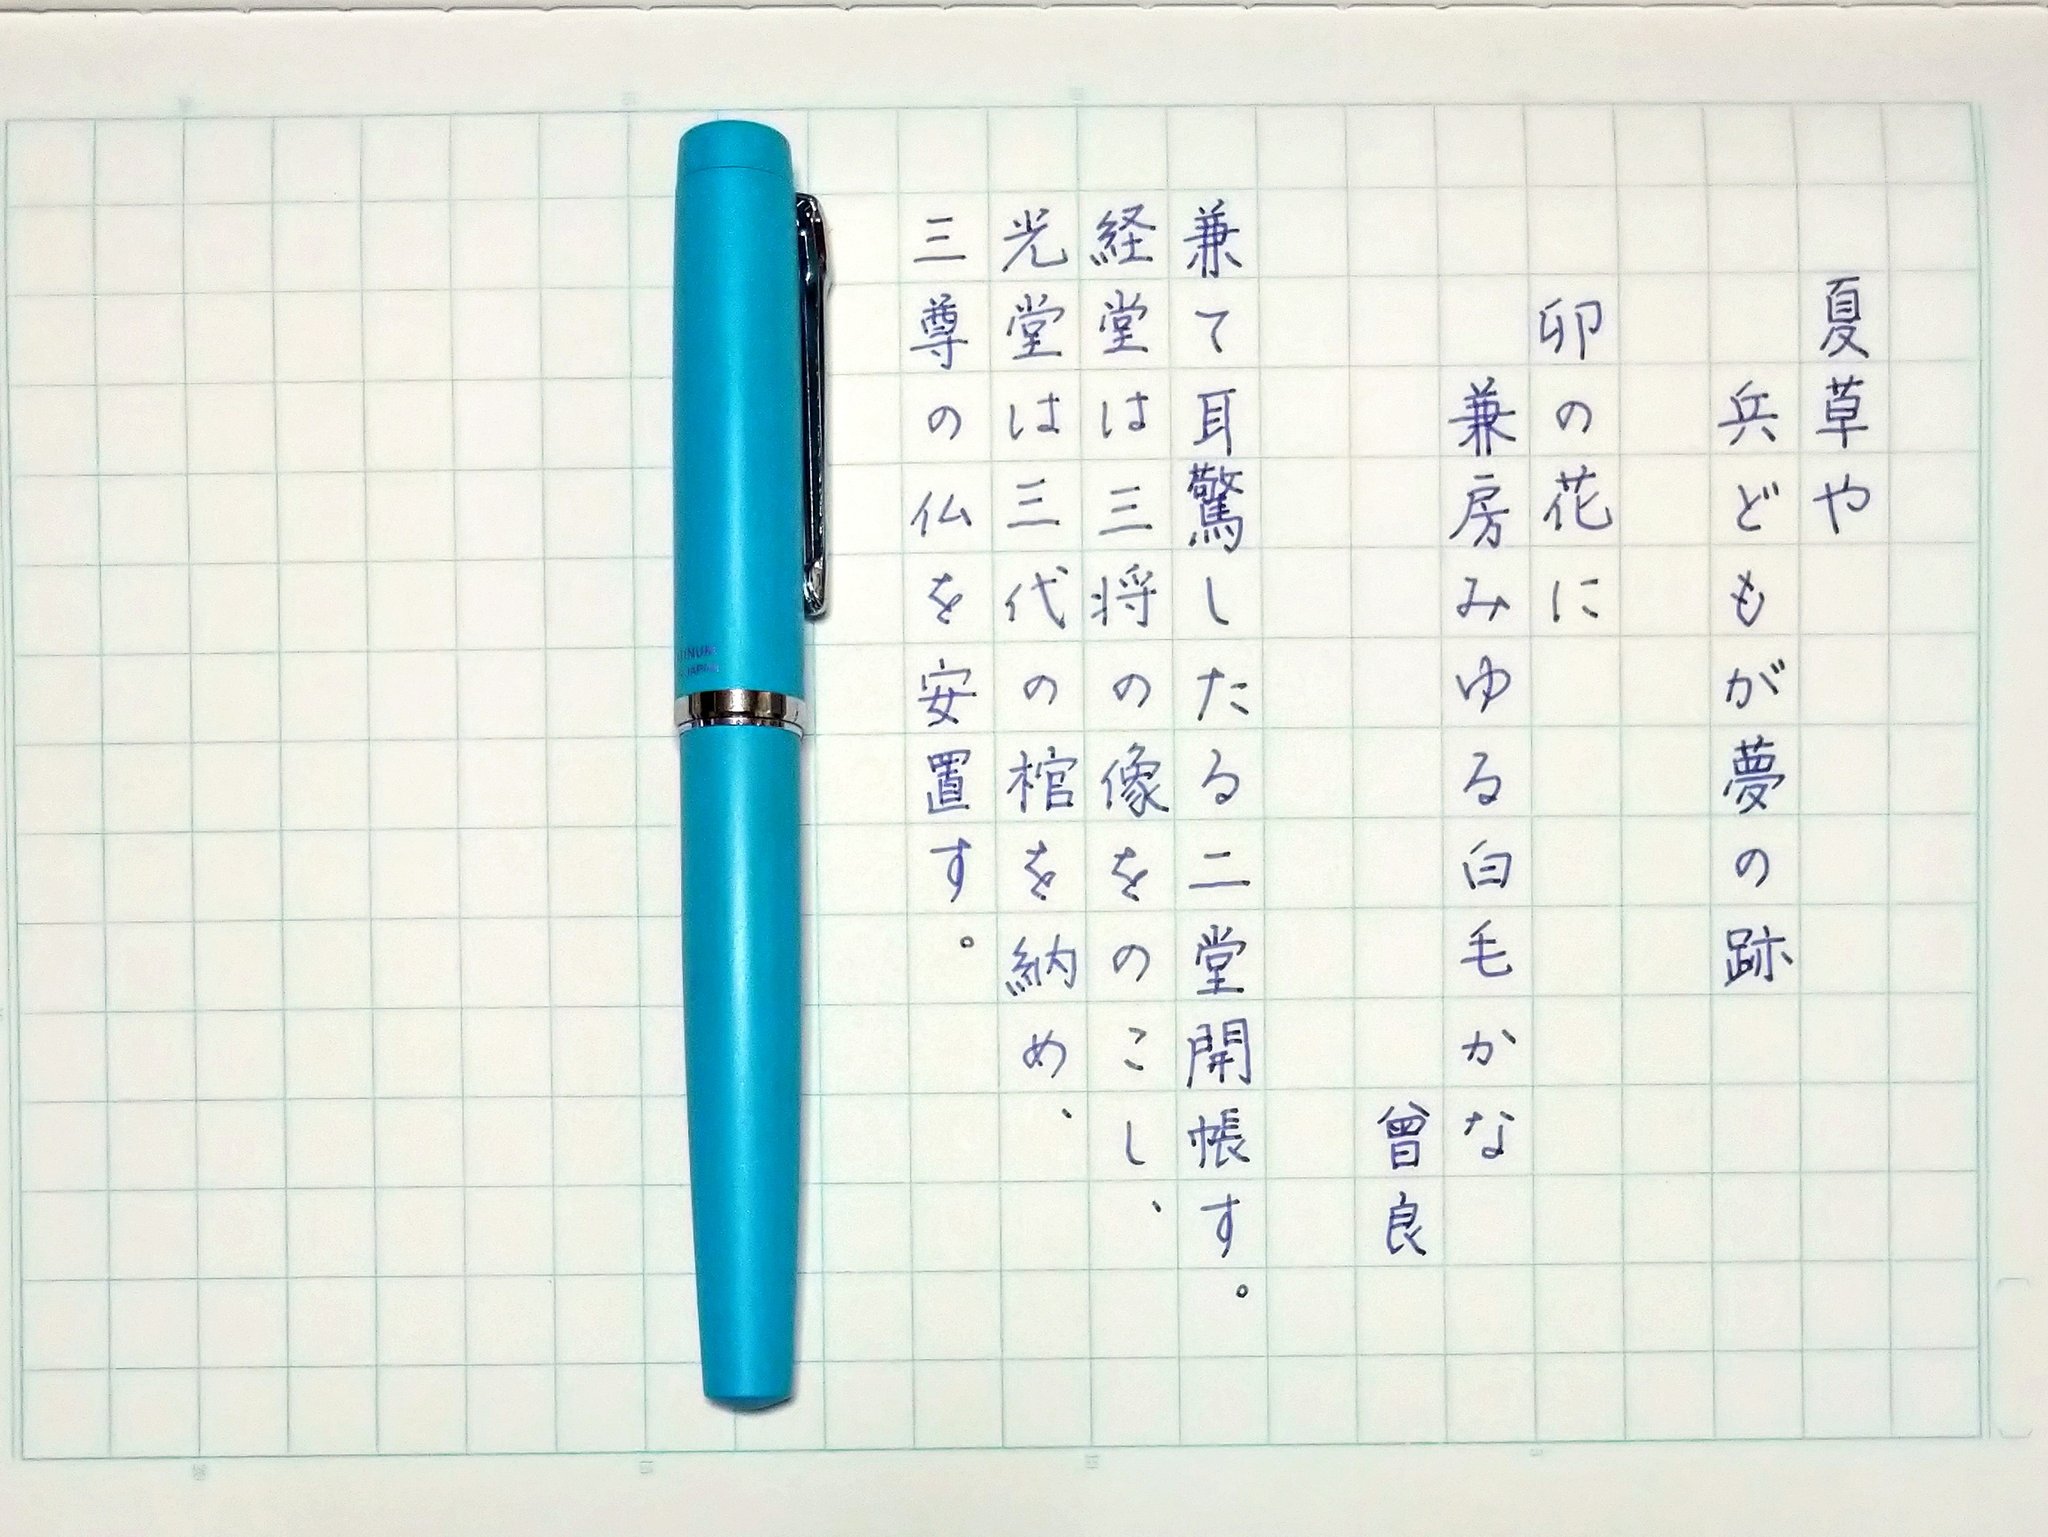 夏草や
兵どもが夢の跡
卯の花に
兼房みゆる白毛かな
曾良
兼て耳驚したる二堂開帳す。
経堂は三将の像をのこし、
光堂は三代の棺を納め、
三尊の仏を安置す。
TINUM
JAPAN